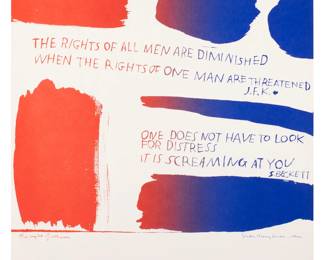 THE RIGHTS OF ALL MEN ARE DIMINISHED
WHEN THE RIGHTS OF ONE MAN ARE THREATENED
J.F.K.
ONE DOES NOT HAVE TO LOOK
FOR DISTRESS
IT IS SCREAMING AT YOU
S BECKETT